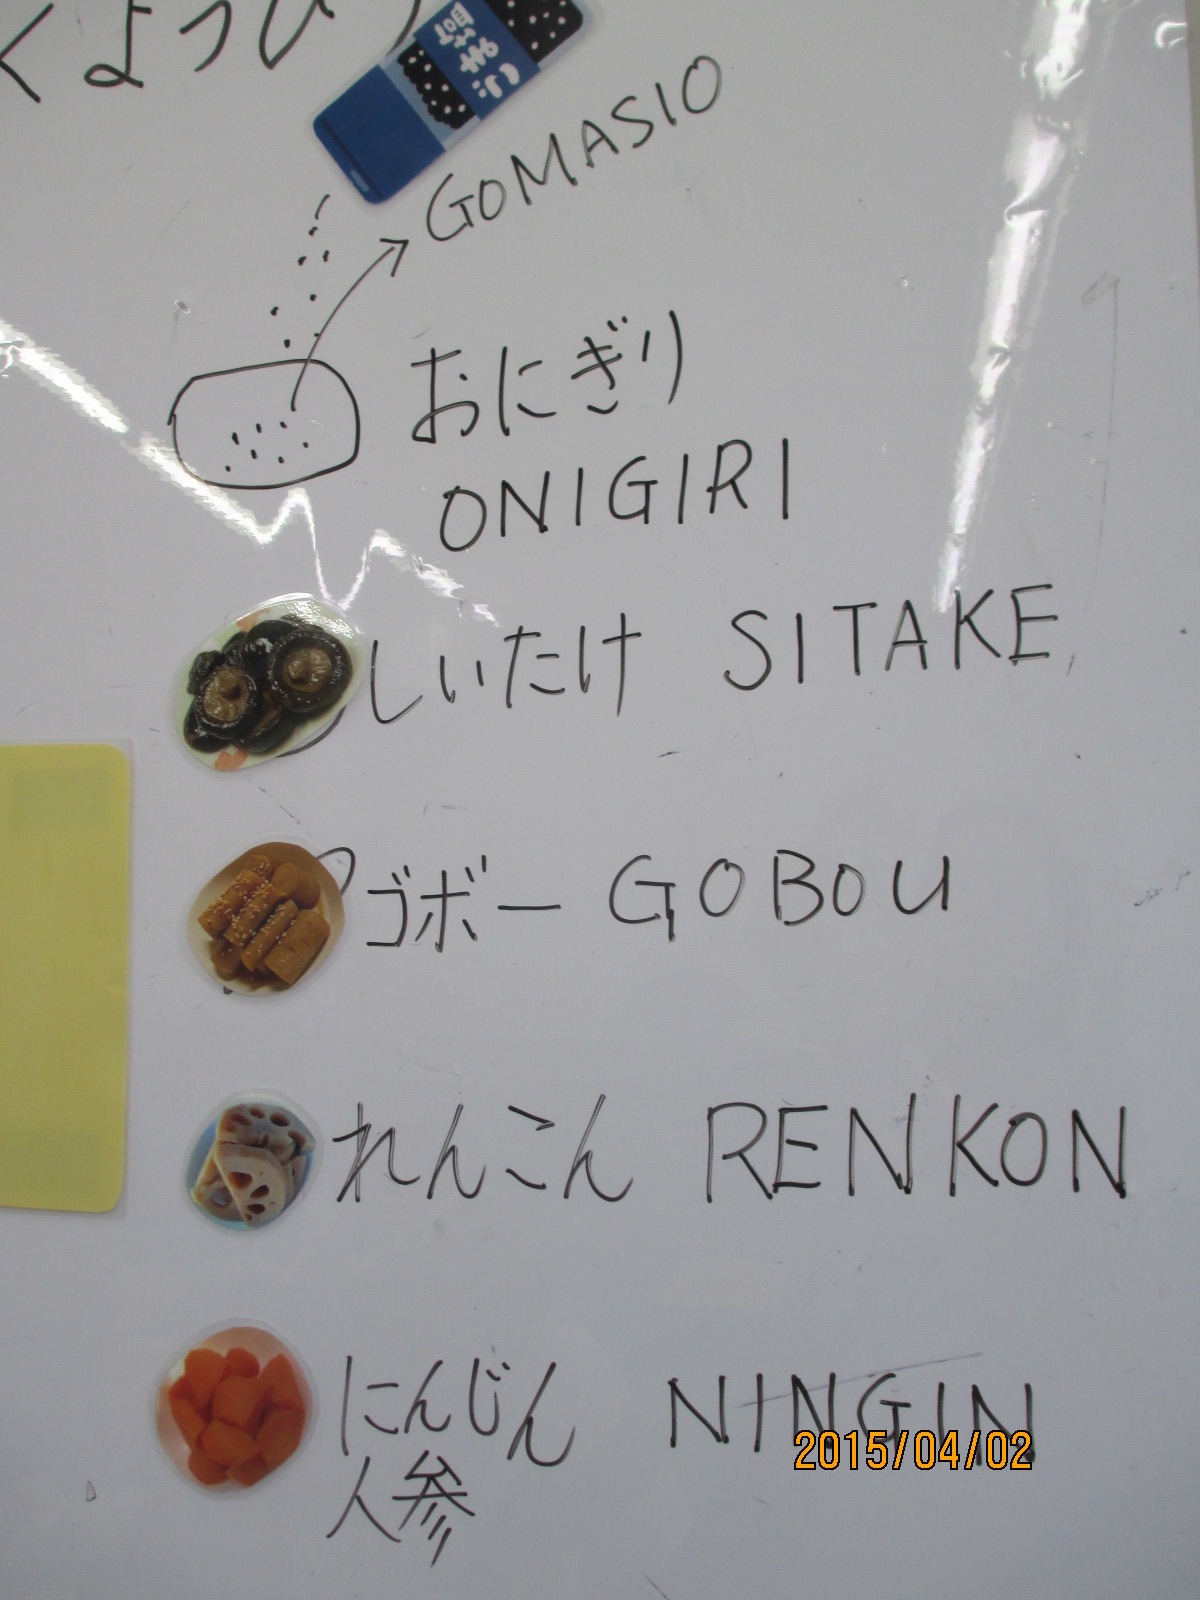 くよっぴ
GOMASIO
おにぎり
ONIGIRI
しいたけ SITAKE
ゴボー GOBOU
れんこん RENKON
にんじん NINGIN
人参
2015/04/02